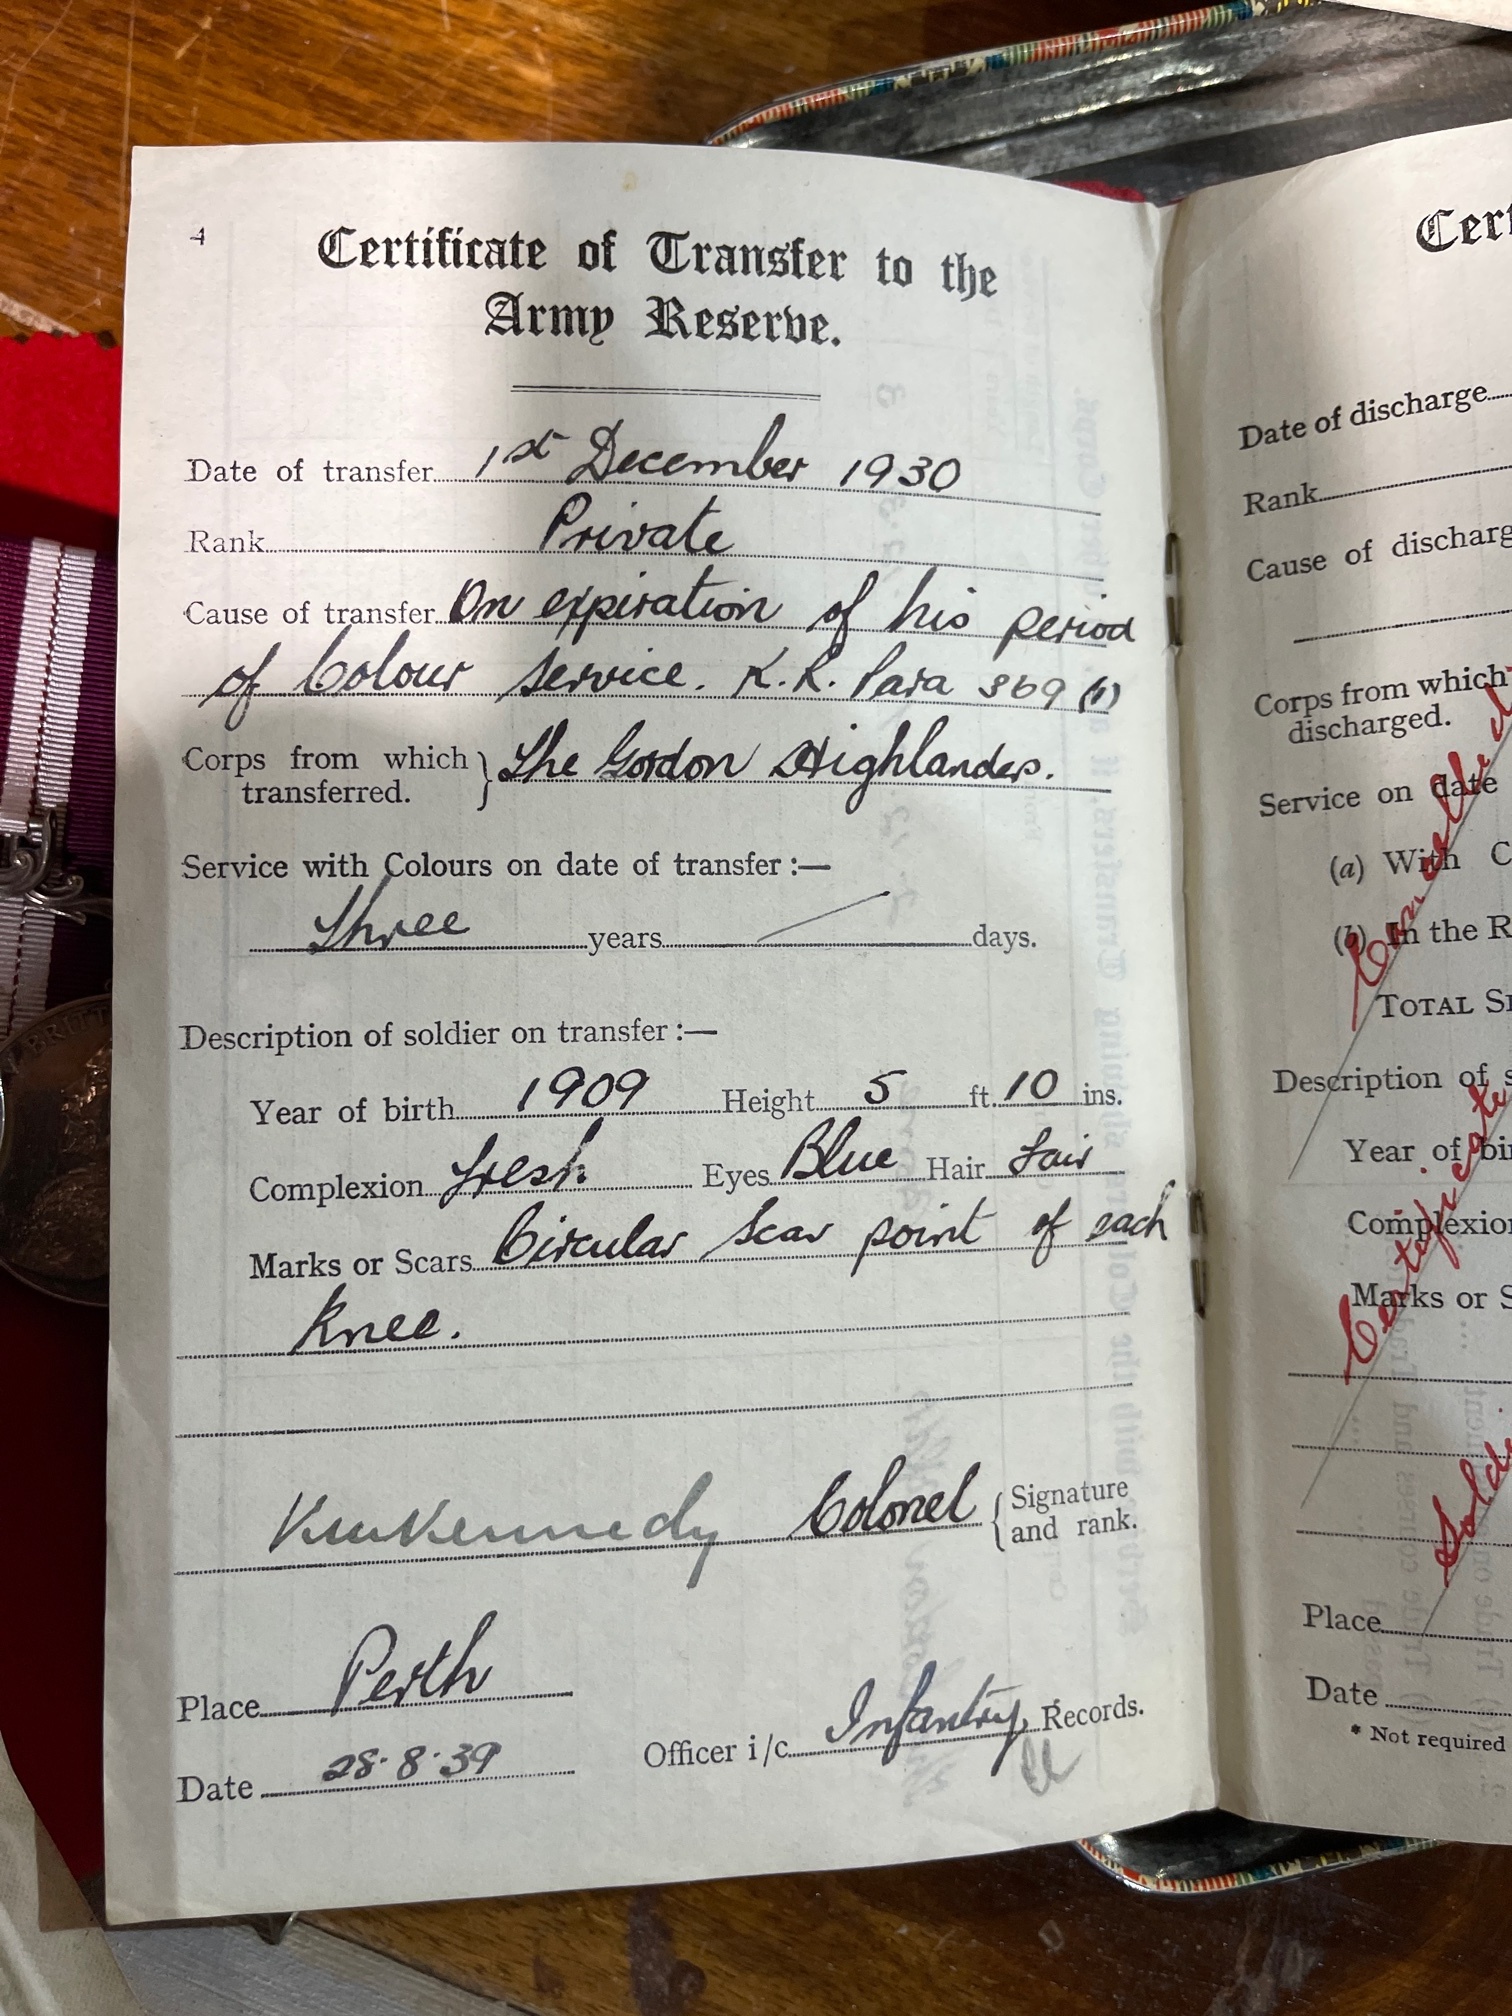 4
Certificate of Transfer to the
Army Reserve.
Date of transfer 1st December 1930
Rank Private
Cause of transfer On expiration of his period
of Colour service. K.R. Para 369 (1)
Corps from which } The Gordon Highlanders.
transferred.
Service with Colours on date of transfer :—
Three years / days.
Description of soldier on transfer :—
Year of birth 1909 Height 5 ft. 10 ins.
Complexion fresh Eyes Blue Hair fair
Marks or Scars Circular scar point of each
knee.
Kennedy Colonel { Signature
and rank.
Place Perth
Officer i/c Infantry Records.
Date 28.8.39
Cert
Date of discharge
Rank
Cause of discharg
Corps from which
discharged.
Service on date
(a) With C
(b) In the R
TOTAL SE
Description of s
Year of bir
Complexion
Marks or S
Place
Date
* Not required
Cancelled
Certificate
BRITT